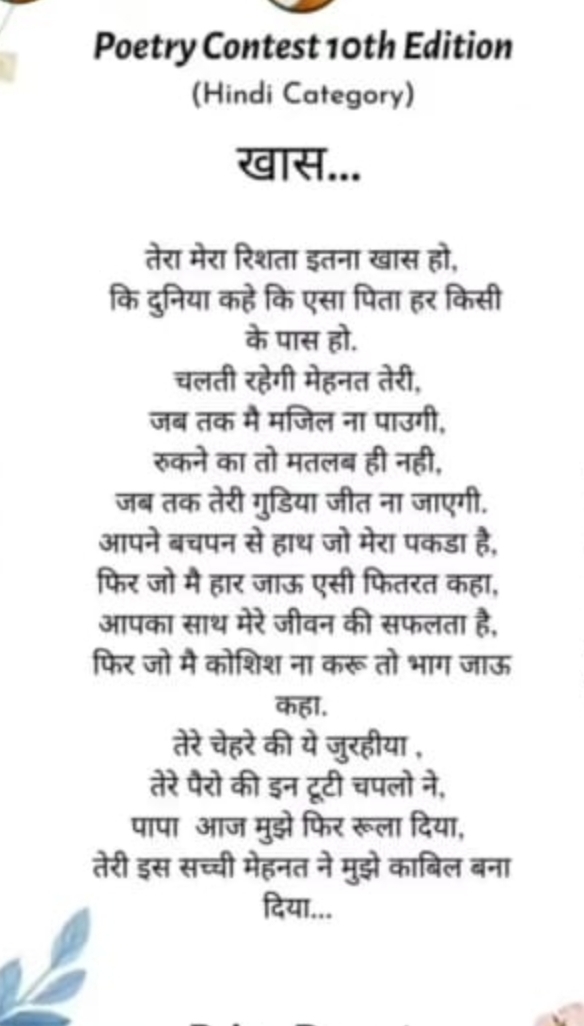 Poetry Contest 10th Edition
(Hindi Category)
खास...
तेरा मेरा रिशता इतना खास हो,
कि दुनिया कहे कि एसा पिता हर किसी
के पास हो.
चलती रहेगी मेहनत तेरी,
जब तक मै मजिल ना पाउगी,
रुकने का तो मतलब ही नही,
जब तक तेरी गुडिया जीत ना जाएगी.
आपने बचपन से हाथ जो मेरा पकडा है,
फिर जो मै हार जाऊ एसी फितरत कहा,
आपका साथ मेरे जीवन की सफलता है,
फिर जो मै कोशिश ना करू तो भाग जाऊ
कहा.
तेरे चेहरे की ये जुरहीया ,
तेरे पैरो की इन टूटी चपलो ने,
पापा आज मुझे फिर रूला दिया,
तेरी इस सच्ची मेहनत ने मुझे काबिल बना
दिया...